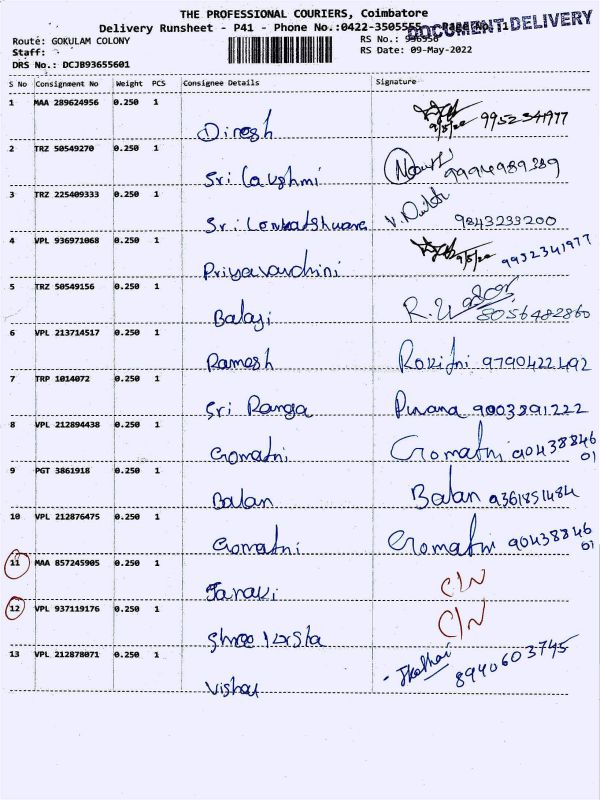 THE PROFESSIONAL COURIERS, Coimbatore
Delivery Runsheet - P41 - Phone No.:0422-3505555
DOCUMENT DELIVERY
Route: GOKULAM COLONY RS No.: 996958
Staff: RS Date: 09-May-2022
DRS No.: DCJB93655601
S No Consignment No Weight PCS Consignee Details Signature
1 MAA 289624956 0.250 1
Dinesh 9952341977
2 TRZ 50549270 0.250 1
Sri Lakshmi 9994989389
3 TRZ 225409333 0.250 1
Sri 9843233200
4 VPL 936971068 0.250 1
Priyavardhini 9952341977
5 TRZ 50549156 0.250 1
Balaji R. 8056482860
6 VPL 213714517 0.250 1
Ramesh 9790422492
7 TRP 1014072 0.250 1
Sri Ranga 9003891222
8 VPL 212894438 0.250 1
Gomathi Gomathi 9043884601
9 PGT 3861918 0.250 1
Balan Balan 9361851484
10 VPL 212876475 0.250 1
Gomathi Gomathi 9043884601
11 MAA 857245905 0.250 1
Janaki C/N
12 VPL 937119176 0.250 1
Shree C/N
13 VPL 212878071 0.250 1
Vishal 8940603745